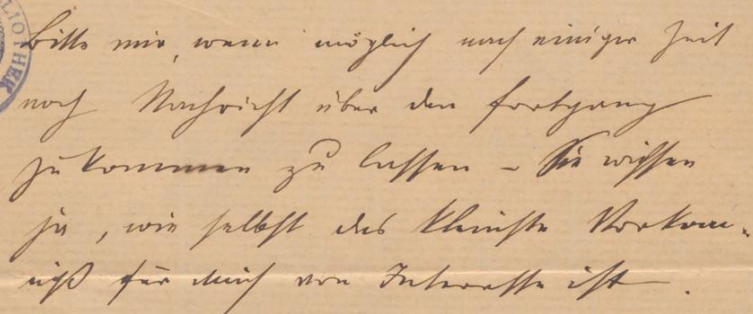 Bitte mir, wenn möglich nach einiger Zeit
noch Nachricht über den Fortgang
zukommen zu lassen – Sie wissen
ja, wie selbst das kleinste Vorkom-
niß für mich von Interesse ist.
LIOTHEK